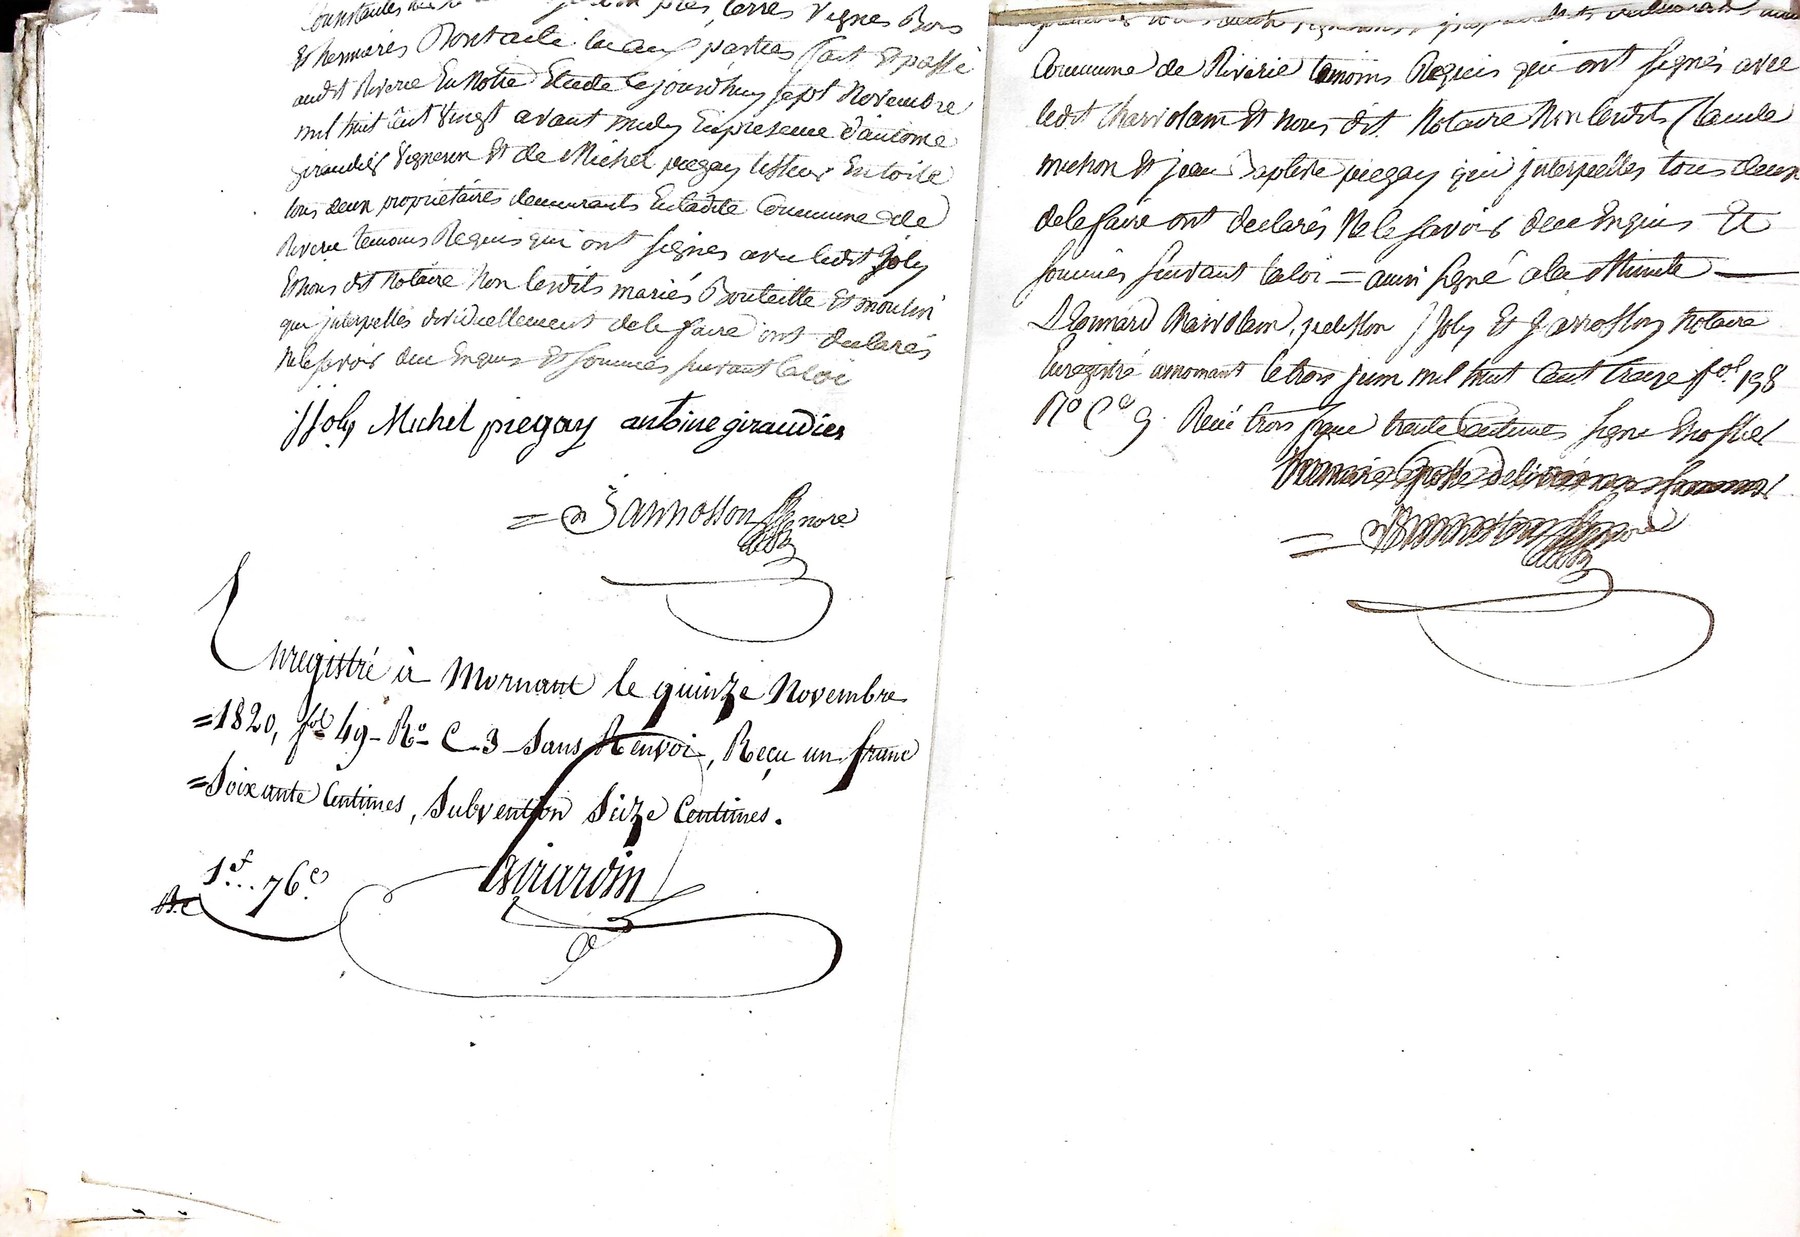 près, terres Vignes Bois
Et hermieres Dont acte les aux parties fait Et passé
audit Riverie En Notre Etude Cejourd'huy sept Novembre
mil huit Cent Vingt avant midy En presence d'antoine
giraudier Vigneron Et de Michel piegay tisseur En toile
tous deux proprietaires demeurants En ladite Commune de
Riverie temoins Requis qui ont signés avec ledit Joly
Et nous dit Notaire Non lesdits mariés Bouteille Et moulin
qui interpellés dividuellement de le faire ont declarés
Ne le savoir deu Enquis Et sommés suivant la loi
JJoly Michel piegay antoine giraudier
= Jarrosson
Enregistré à Mornant le quinze Novembre
=1820, fol 49 - Ro - C 3 - Sans Renvoi, Reçu un franc
=Soixante Centimes, Subvention Seize Centimes.
1f...76c
Girardin
Commune de Riverie temoins Requis qui ont signés avec
ledit Et nous dit Notaire Non lesdits Claude
michon Et jean Baptiste piegay qui interpellés tous deux
de le faire ont declarés Ne le savoir deu Enquis Et
sommés suivant la loi = ainsi signé a la Minute
Joly Et Jarrosson Notaire
Enregistré a mornant le trois juin mil huit Cent treize fol 198
Ro Ce 9 Reçu trois franc trente Centimes signé